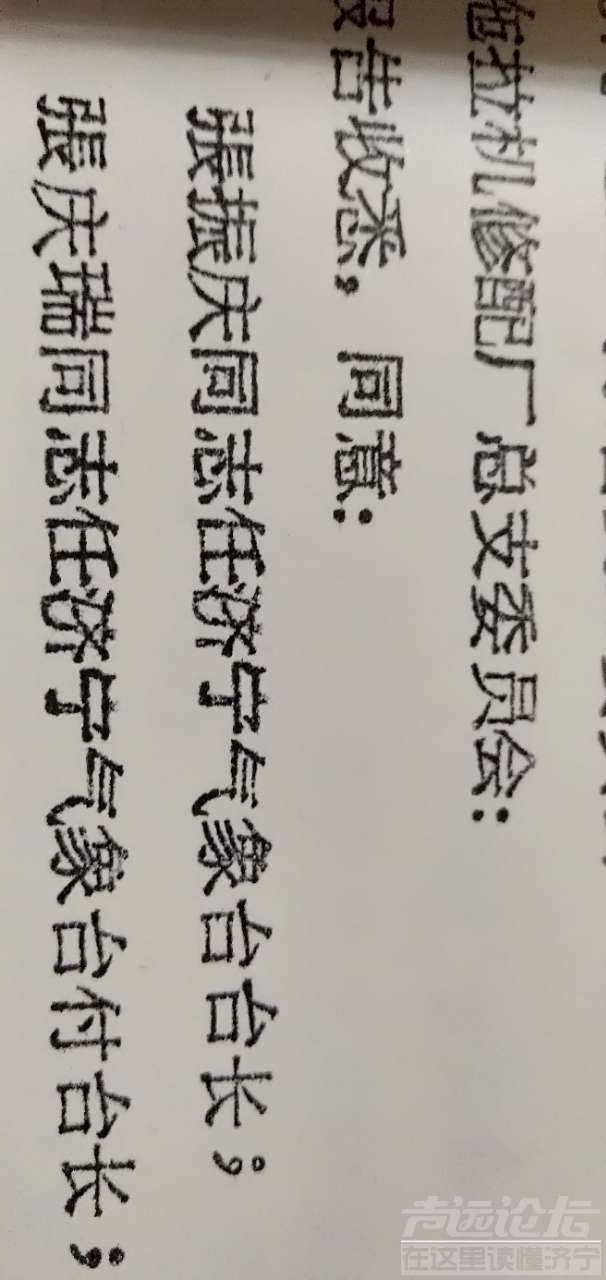 拖拉机修配厂总支委员会：
报告收悉，同意：
張振庆同志任济宁气象台台长；
張庆瑞同志任济宁气象台付台长；
声远论坛
在这里读懂济宁